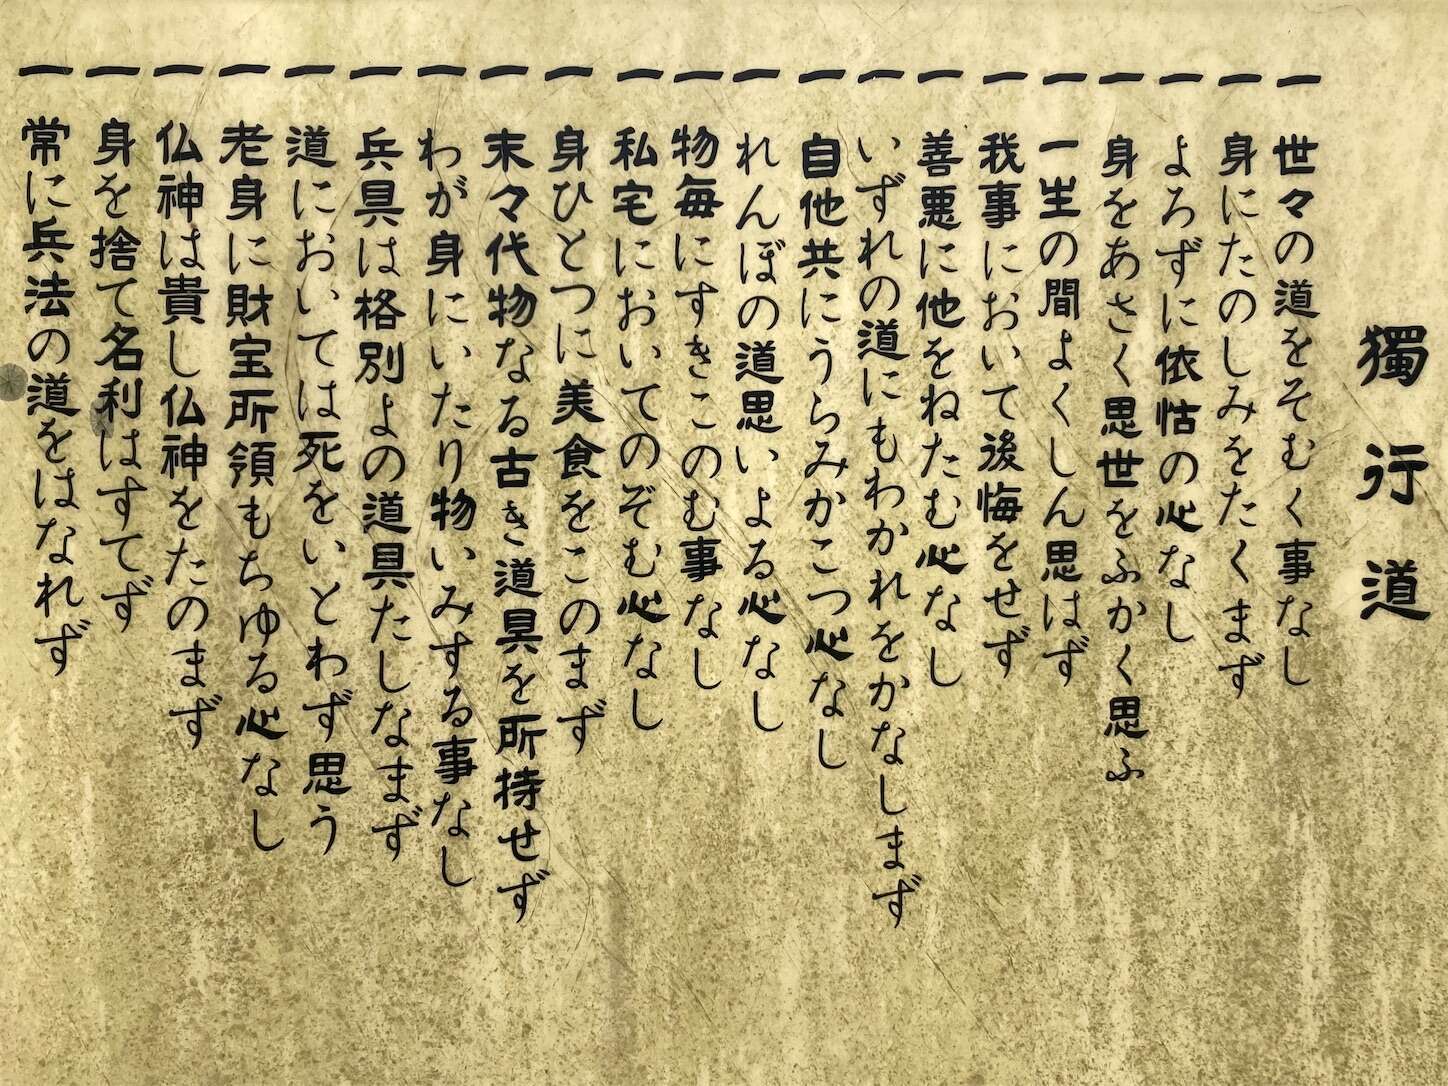 獨行道
一 世々の道をそむく事なし
一 身にたのしみをたくまず
一 よろずに依怙の心なし
一 身をあさく思世をふかく思ふ
一 一生の間よくしん思はず
一 我事において後悔をせず
一 善悪に他をねたむ心なし
一 いずれの道にもわかれをかなしまず
一 自他共にうらみかこつ心なし
一 れんぼの道思いよる心なし
一 物毎にすきこのむ事なし
一 私宅においてのぞむ心なし
一 身ひとつに美食をこのまず
一 末々代物なる古き道具を所持せず
一 わが身にいたり物いみする事なし
一 兵具は格別よの道具たしなまず
一 道においては死をいとわず思う
一 老身に財宝所領もちゆる心なし
一 仏神は貴し仏神をたのまず
一 身を捨て名利はすてず
一 常に兵法の道をはなれず